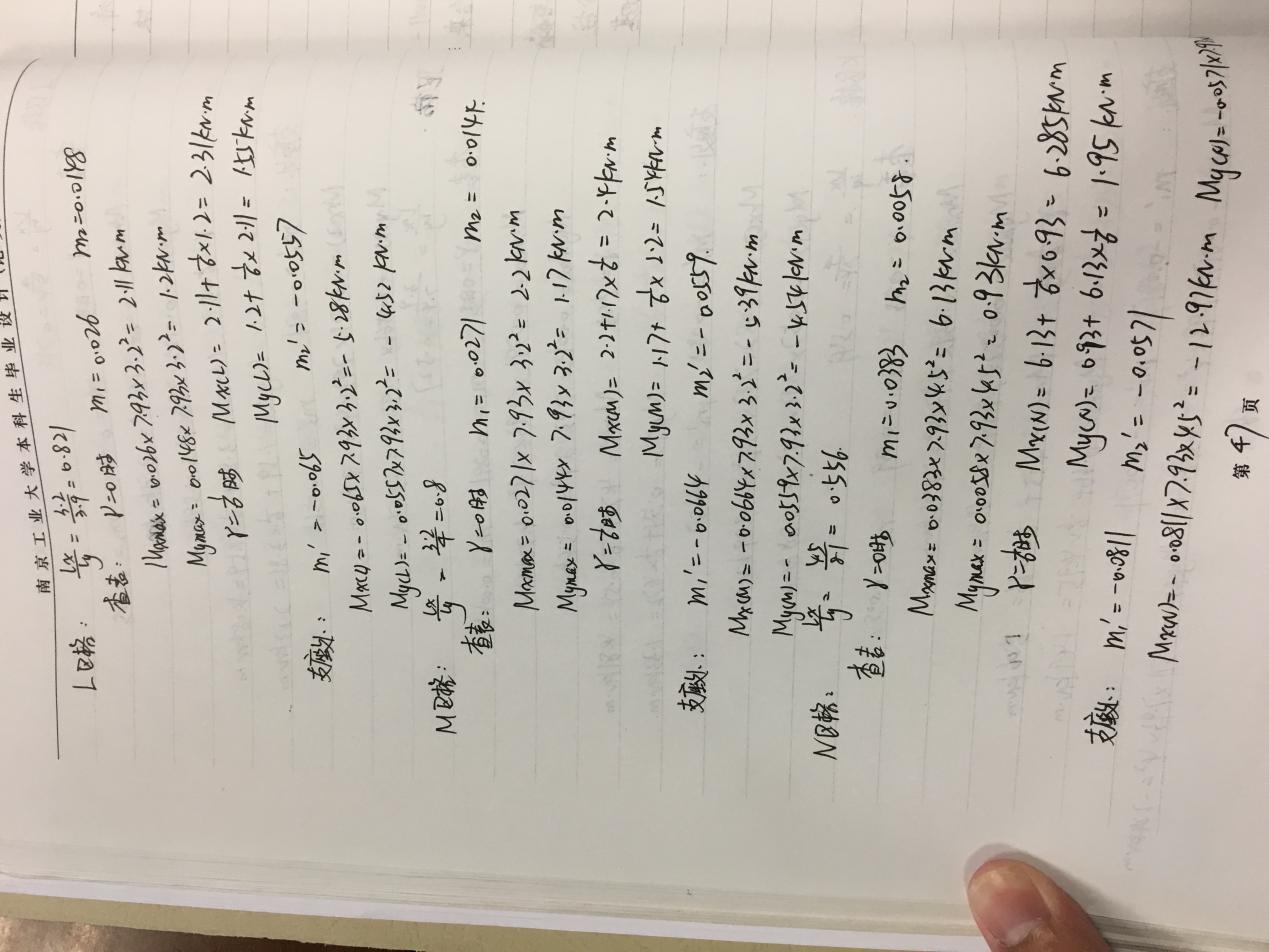 南京工业大学本科生毕业设计
L区格: lx/ly = 3.2/3.9 = 0.821
查表: γ=0时 m1=0.026 m2=0.0148
Mxmax=0.026×7.93×3.2²=2.11kN·m
Mymax=0.0148×7.93×3.2²=1.2kN·m
γ=1/6时 Mx(L)=2.11+1/6×1.2=2.31kN·m
My(L)=1.2+1/6×2.11=1.55kN·m
支座处: m1'=-0.065 m2'=-0.0557
Mx(L)=-0.065×7.93×3.2²=-5.28kN·m
My(L)=-0.0557×7.93×3.2²=-4.52kN·m
M区格: lx/ly = 3.2/4 = 0.8
查表: γ=0时 m1=0.0271 m2=0.0144.
Mxmax=0.0271×7.93×3.2²=2.2kN·m
Mymax=0.0144×7.93×3.2²=1.17kN·m
γ=1/6时 Mx(M)=2.2+1.17×1/6=2.4kN·m
My(M)=1.17+1/6×2.2=1.54kN·m
支座处: m1'=-0.0664 m2'=-0.0559.
Mx(M)=-0.0664×7.93×3.2²=-5.39kN·m
My(M)=-0.0559×7.93×3.2²=-4.54kN·m
N区格: lx/ly = 4.5/8.1 = 0.556.
查表: γ=0时 m1=0.0383 m2=0.0058.
Mxmax=0.0383×7.93×4.5²=6.13kN·m
Mymax=0.0058×7.93×4.5²=0.93kN·m
γ=1/6时 Mx(N)=6.13+1/6×0.93=6.285kN·m
My(N)=0.93+6.13×1/6=1.95kN·m
支座处: m1'=-0.0811 m2'=-0.0571
Mx(N)=-0.0811×7.93×4.5²=-12.97kN·m My(N)=-0.0571×7.9
第 47 页